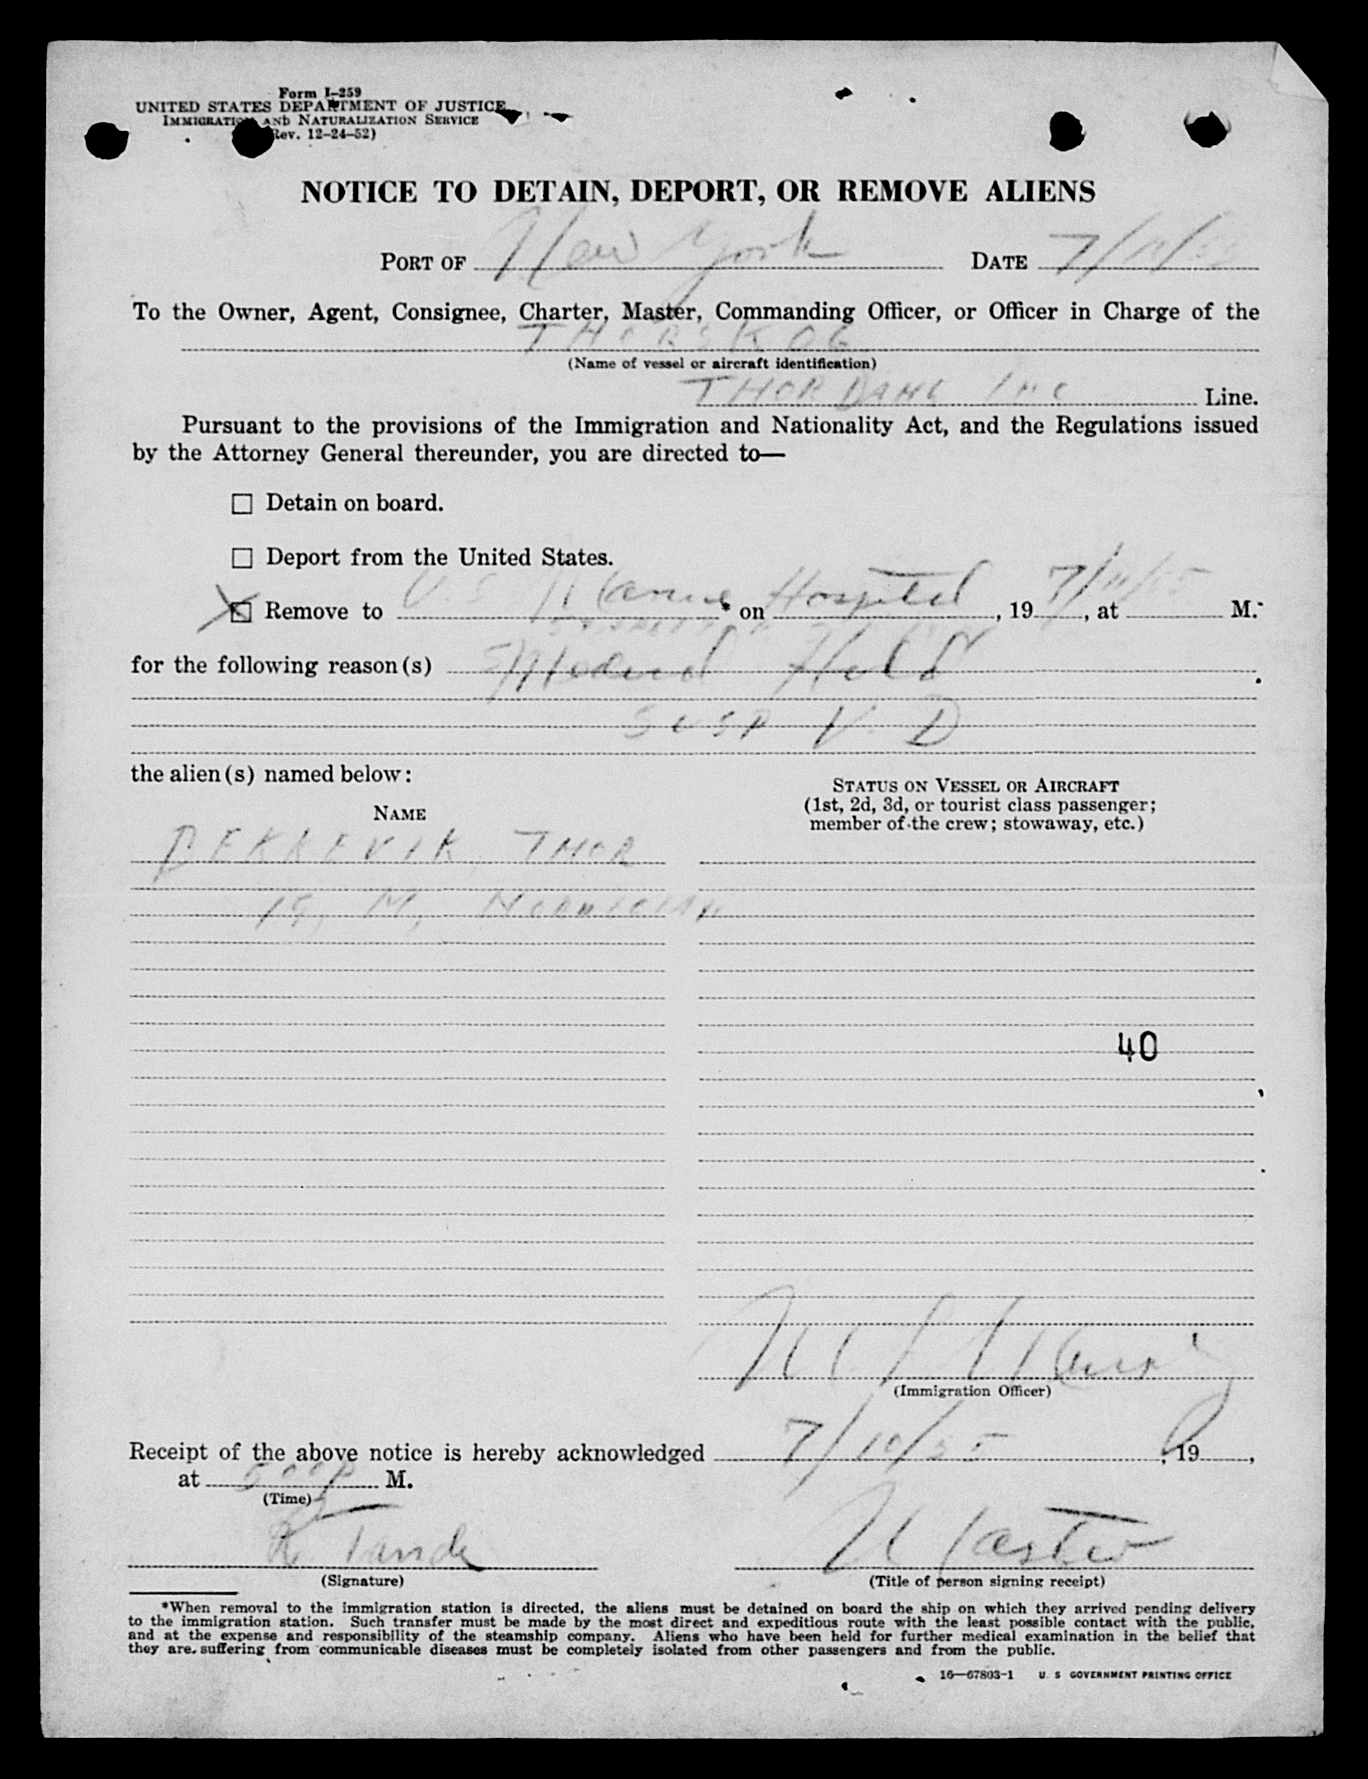 Form I-259
UNITED STATES DEPARTMENT OF JUSTICE
IMMIGRATION AND NATURALIZATION SERVICE
(Rev. 12-24-52)
NOTICE TO DETAIN, DEPORT, OR REMOVE ALIENS
PORT OF New York DATE 7/11/55
To the Owner, Agent, Consignee, Charter, Master, Commanding Officer, or Officer in Charge of the
THORSKOG
(Name of vessel or aircraft identification)
THOR DAHL INC Line.
Pursuant to the provisions of the Immigration and Nationality Act, and the Regulations issued
by the Attorney General thereunder, you are directed to—
☐ Detain on board.
☐ Deport from the United States.
☒ Remove to U.S Marine * on Hospital, 19 7/11/55, at M.
for the following reason(s) Medical Hold
SUSP V. D
the alien(s) named below:
NAME
STATUS ON VESSEL OR AIRCRAFT
(1st, 2d, 3d, or tourist class passenger;
member of the crew; stowaway, etc.)
BEKKEVIK, THOR
19, M, NORWEGIAN
40
(Immigration Officer)
Receipt of the above notice is hereby acknowledged 7/10/55, 19,
at 500P M.
(Time)
R Tande
Master
(Signature)
(Title of person signing receipt)
*When removal to the immigration station is directed, the aliens must be detained on board the ship on which they arrived pending delivery
to the immigration station. Such transfer must be made by the most direct and expeditious route with the least possible contact with the public,
and at the expense and responsibility of the steamship company. Aliens who have been held for further medical examination in the belief that
they are suffering from communicable diseases must be completely isolated from other passengers and from the public.
16—67803-1 U. S GOVERNMENT PRINTING OFFICE